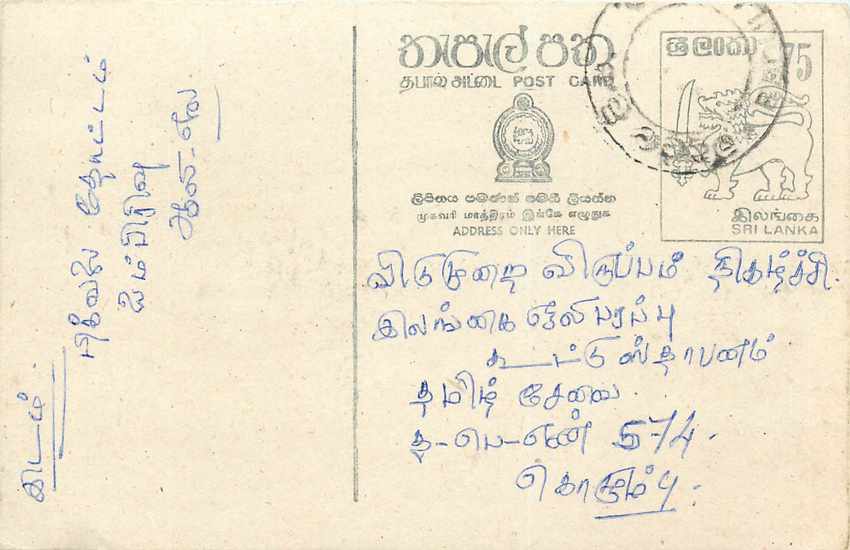 තැපැල් පත
தபால் அட்டை POST CARD
ශ්‍රී ලංකා 75
ලිපිනය පමණක් මෙහි ලියන්න
முகவரி மாத்திரம் இங்கே எழுதுக
ADDRESS ONLY HERE
இலங்கை
SRI LANKA
விடுமுறை விருப்பம் நிகழ்ச்சி.
இலங்கை ஒலிபரப்பு
கூட்டு ஸ்தாபனம்
தமிழ் சேவை
த-பெ-எண் 574.
கொழும்பு.
இடம்.
தோட்டம்